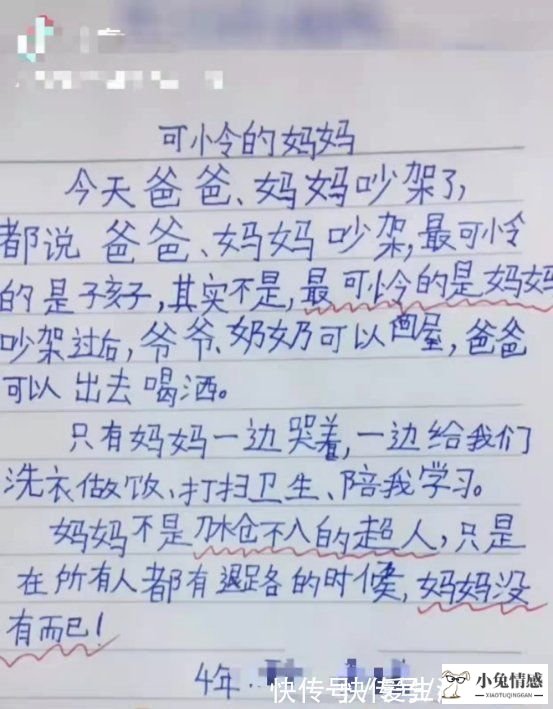 可怜的妈妈
今天爸爸、妈妈吵架了,
都说爸爸、妈妈吵架,最可怜
的是孩子,其实不是,最可怜的是妈妈
吵架过后,爷爷、奶奶可以回屋,爸爸
可以出去喝酒。
只有妈妈一边哭着,一边给我们
洗衣做饭、打扫卫生、陪我学习。
妈妈不是刀枪不入的超人,只是
在所有人都有退路的时候,妈妈没
有而已!
4年
快传号/
小兔情感
XIAOTUQINGGAN